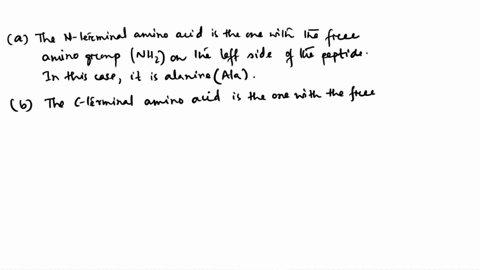 (a) The N-terminal amino acid is the one with the free
amino group (NH₂) on the left side of the peptide.
In this case, it is alanine (Ala).
(b) The C-terminal amino acid is the one with the free